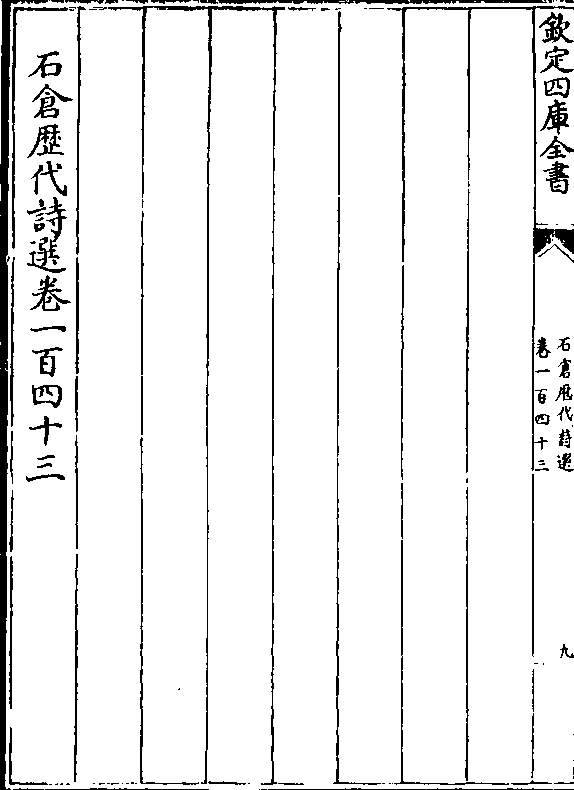 欽定四庫全書
石倉歴代詩選
卷一百四十三
九
石倉歴代詩選卷一百四十三